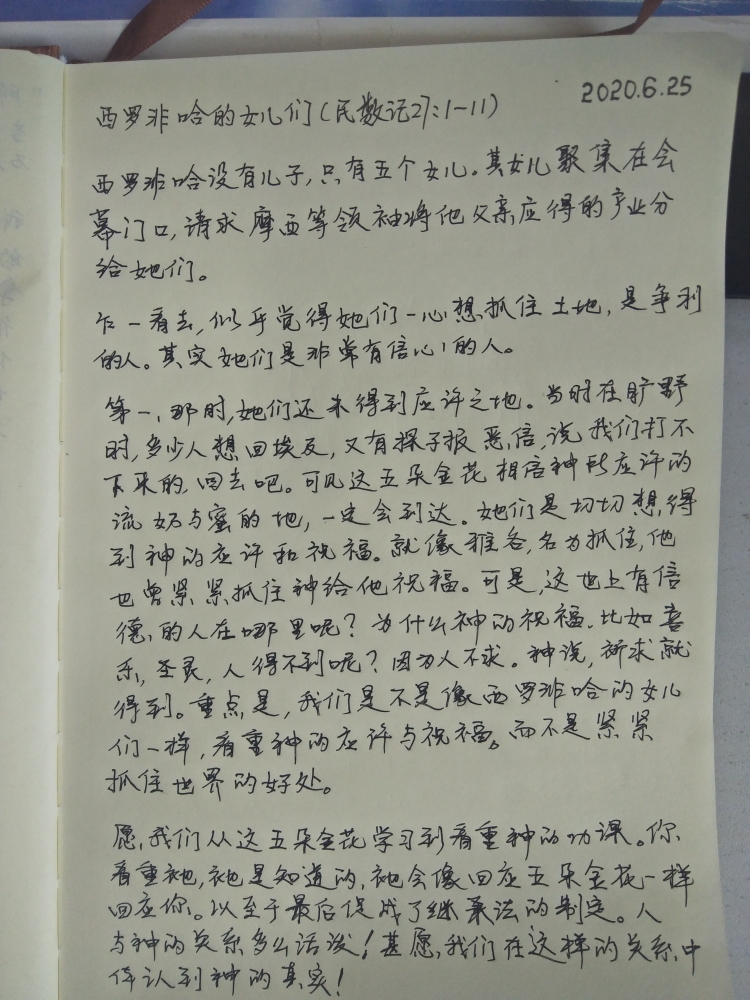 2020.6.25
西罗非哈的女儿们(民数记27:1-11)
西罗非哈没有儿子,只有五个女儿。其女儿聚集在会
幕门口,请求摩西等领袖将他父亲应得的产业分
给她们。
乍一看去,似乎觉得她们一心想抓住土地,是争利
的人。其实她们是非常有信心的人。
第一,那时,她们还未得到应许之地。当时在旷野
时,多少人想回埃及,又有探子报恶信,说我们打不
下来的,回去吧。可见这五朵金花相信神所应许的
流奶与蜜的地,一定会到达。她们是切切想得
到神的应许和祝福。就像雅各,名为抓住,他
也曾紧紧抓住神给他祝福。可是,这世上有信
德的人在哪里呢?为什么神的祝福,比如喜
乐,圣灵,人得不到呢?因为人不求。神说,祈求就
得到。重点是,我们是不是像西罗非哈的女儿
们一样,看重神的应许与祝福。而不是紧紧
抓住世界的好处。
愿,我们从这五朵金花学习到看重神的功课。你
看重祂,祂是知道的,祂会像回应五朵金花一样
回应你。以至于最后促成了继承法的制定。人
与神的关系多么活泼!甚愿,我们在这样的关系中
体认到神的真实!